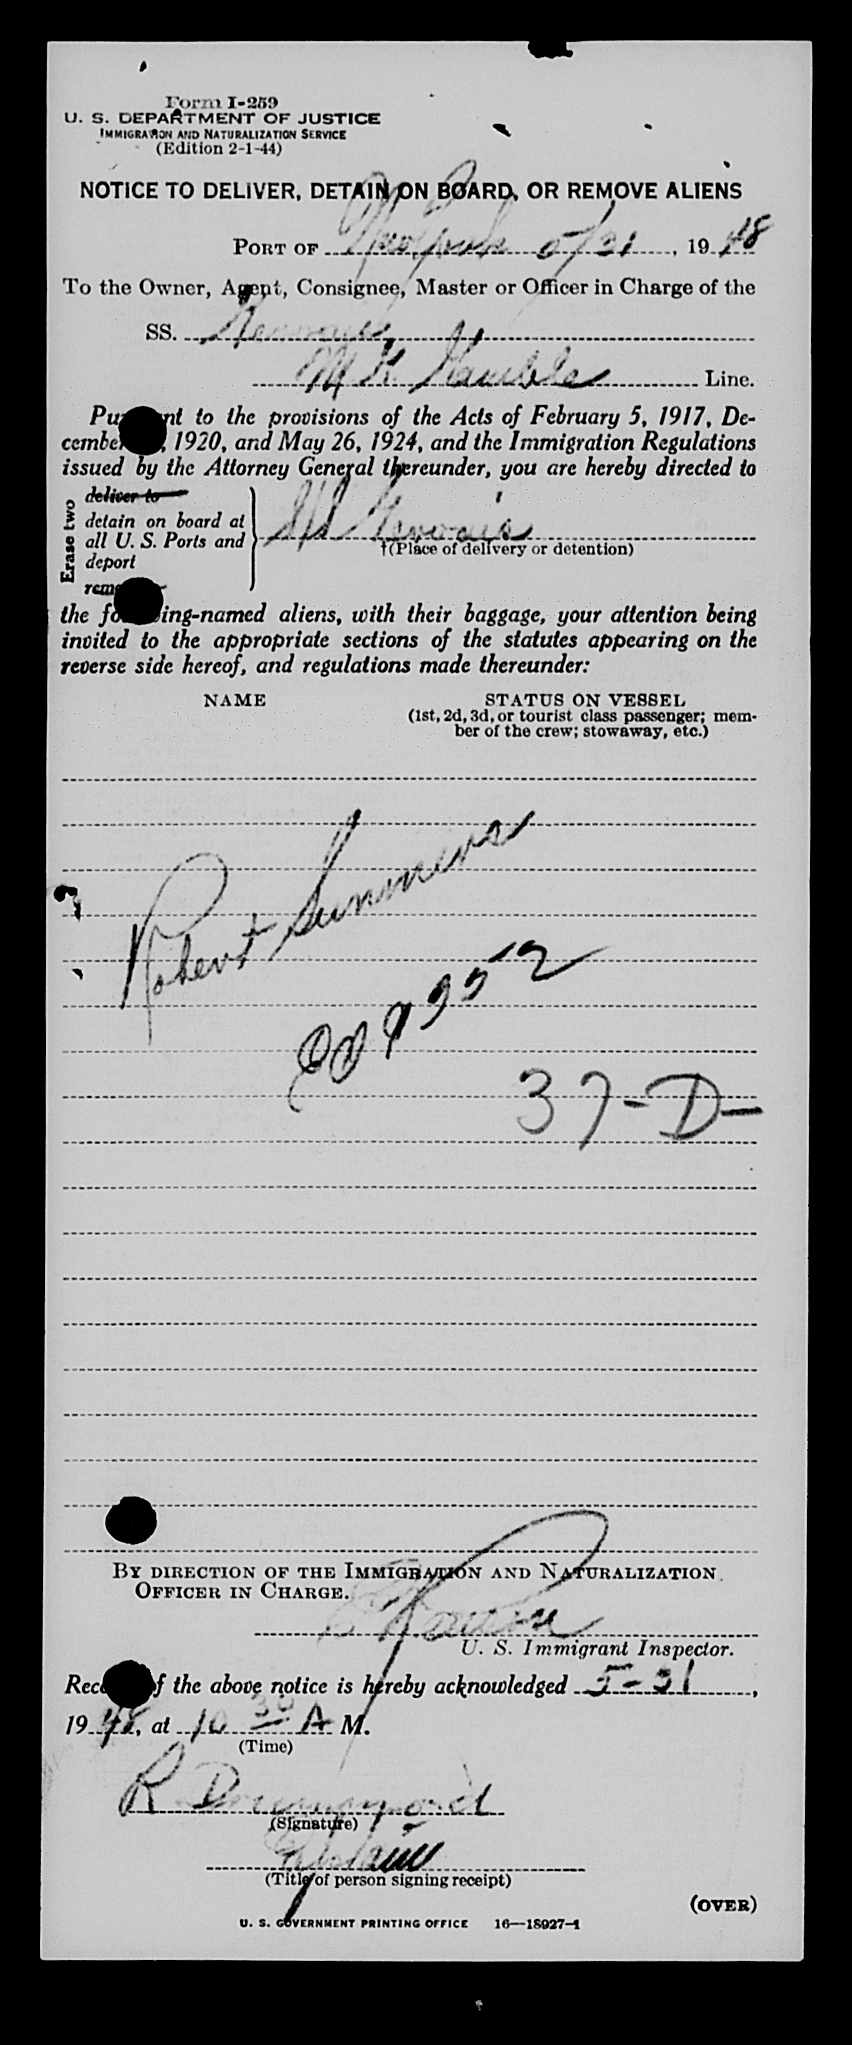 Form I-259
U. S. DEPARTMENT OF JUSTICE
IMMIGRATION AND NATURALIZATION SERVICE
(Edition 2-1-44)
NOTICE TO DELIVER, DETAIN ON BOARD, OR REMOVE ALIENS
PORT OF New York 5/31, 1948
To the Owner, Agent, Consignee, Master or Officer in Charge of the
SS.
Line.
Pu nt to the provisions of the Acts of February 5, 1917, De-
cembe , 1920, and May 26, 1924, and the Immigration Regulations
issued by the Attorney General thereunder, you are hereby directed to
Erase two
deliver to
detain on board at
all U. S. Ports and
deport
rem
†(Place of delivery or detention)
the fo ing-named aliens, with their baggage, your attention being
invited to the appropriate sections of the statutes appearing on the
reverse side hereof, and regulations made thereunder:
NAME STATUS ON VESSEL
(1st, 2d, 3d, or tourist class passenger; mem-
ber of the crew; stowaway, etc.)
Robert Summers
37-D-
BY DIRECTION OF THE IMMIGRATION AND NATURALIZATION
OFFICER IN CHARGE.
U. S. Immigrant Inspector.
Rec f the above notice is hereby acknowledged 5-31,
1948, at 10 30 A M.
(Time)
R Drummond
(Signature)
(Title of person signing receipt)
(OVER)
U. S. GOVERNMENT PRINTING OFFICE 16—18927-1